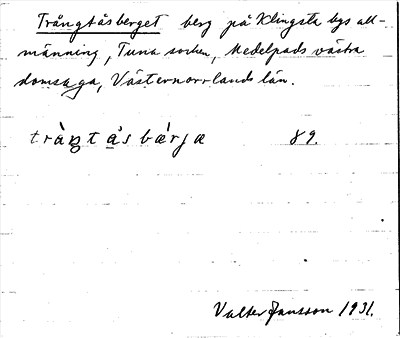 Trångtåsberget berg på Klingsta bys all-
männing, Tuna socken, Medelpads västra
domsaga, Västernorrlands län.
tràŋtåsbárja 89.
Valter Jansson 1931.